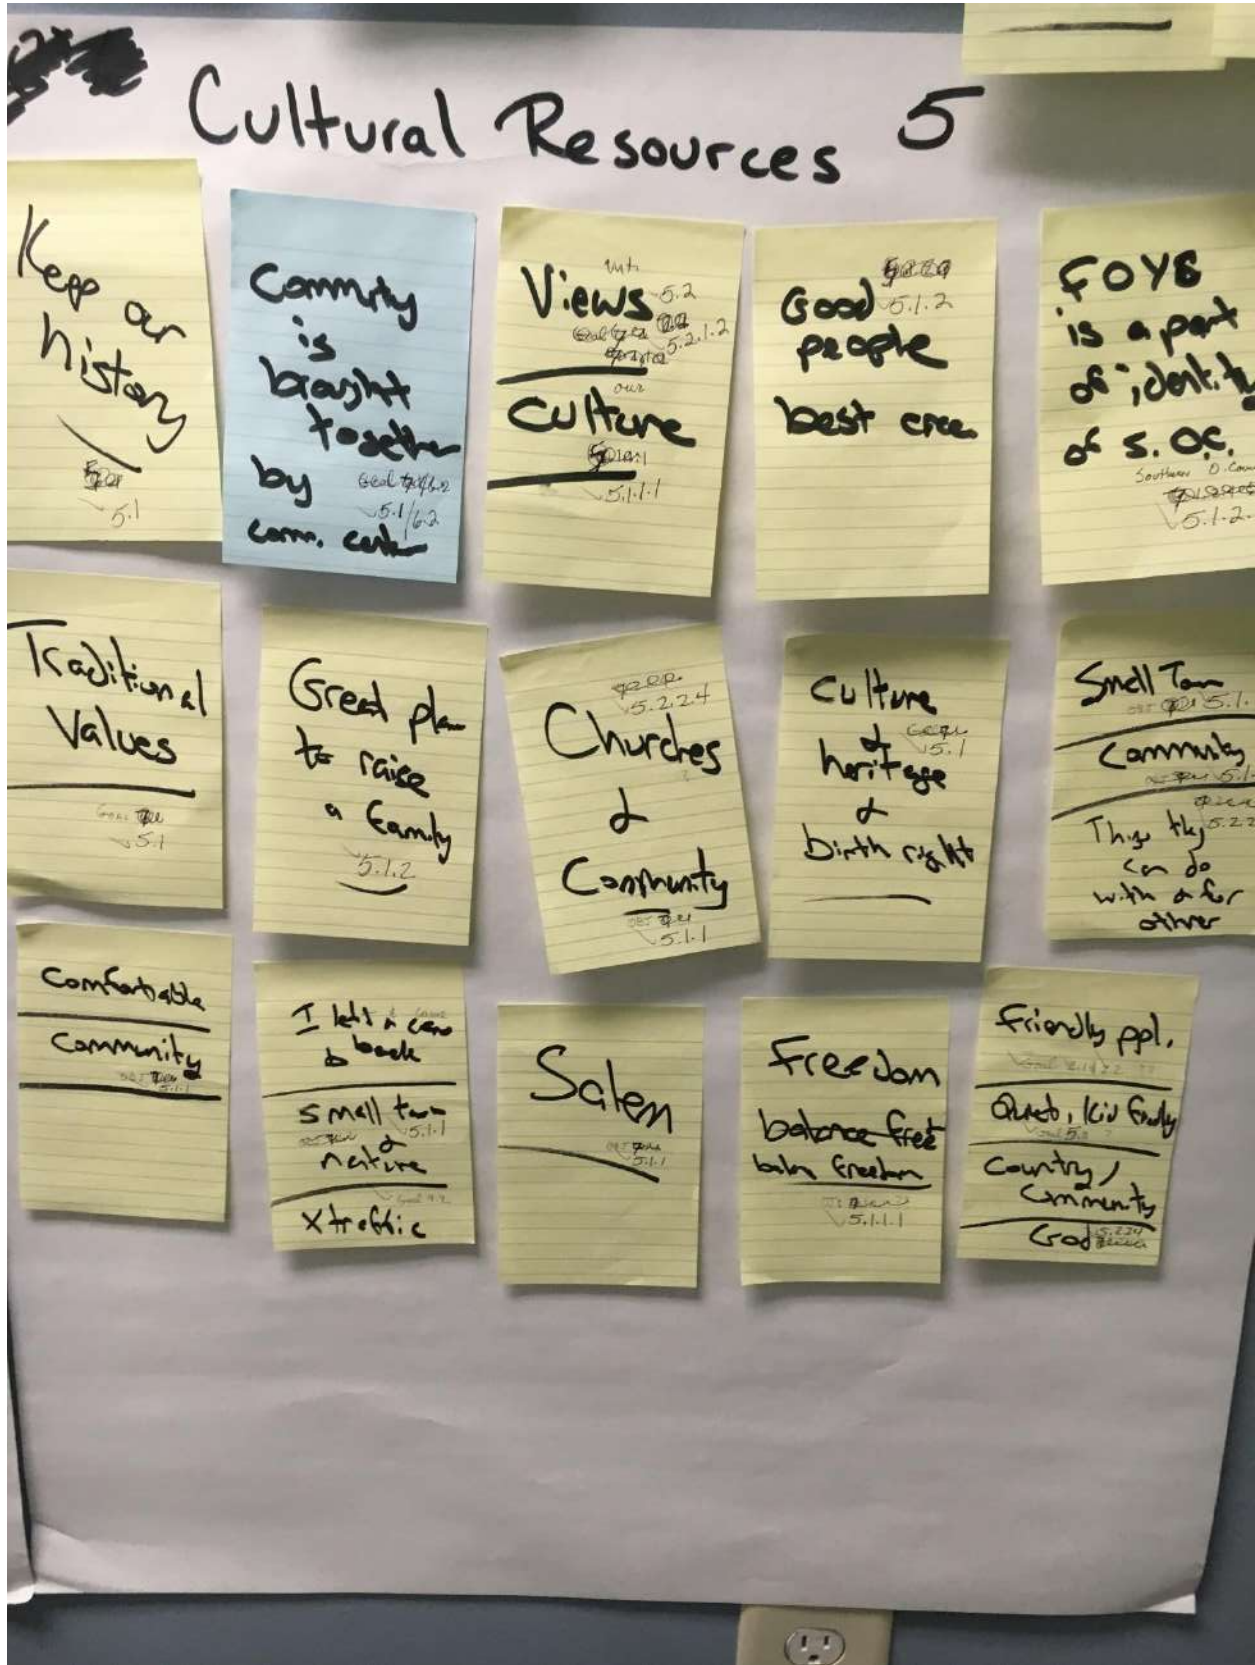 Cultural Resources 5
Keep our
history
5.1
Commity
is
brought
together
by
5.1/6.2
comm. center
Views 5.2
5.2.1.2
our
Culture
5.1.1.1
Good 5.1.2
people
best
FOYB
is a part
of identity
of S. O.C.
Southern O. Coun
5.1.2.
Traditional
Values
Goal
5.1
Great
to raise
a family
5.1.2
5.2.2.4
Churches
&
Community
OBJ
5.1.1
Culture
&
5.1
heritage
&
birth right
Small Town
OBJ 5.1.
Community
OBJ 5.1.
5.2.2
can do
with & for
other
Comfortable
Community
OBJ
5.1.1
I left &
back
small town
& 5.1.1
nature
X traffic
Salem
OBJ
5.1.1
Freedom
balance free
freedom
5.1.1.1
Friendly ppl.
Quiet, Kid
Country/
Community
God 5.2.2.4